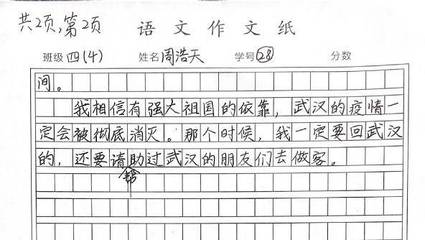 共2页,第2页 语文作文纸
班级 四(4) 姓名 周浩天 学号 28 分数
间。
我相信有强大祖国的依靠，武汉的疫情一
定会被彻底消灭。那个时候，我一定要回武汉
的，还要请帮助过武汉的朋友们去做客。